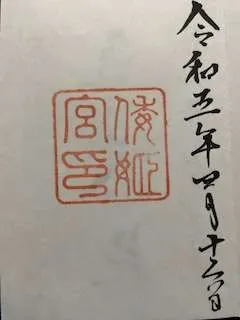 令和五年四月十六日
倭姫
宮印